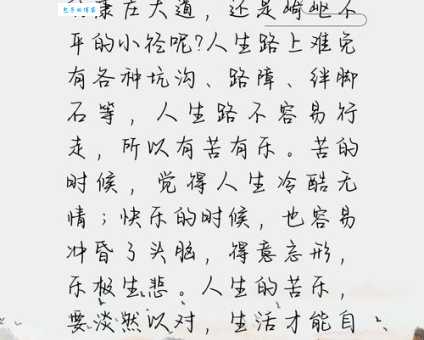 康庄大道，还是崎岖不
平的小径呢?人生路上难免
有各种坑沟、路障、绊脚
石等，人生路不容易行
走，所以有苦有乐。苦的
时候，觉得人生冷酷无
情；快乐的时候，也容易
冲昏了头脑，得意忘形，
乐极生悲。人生的苦乐，
要淡然以对，生活才能自